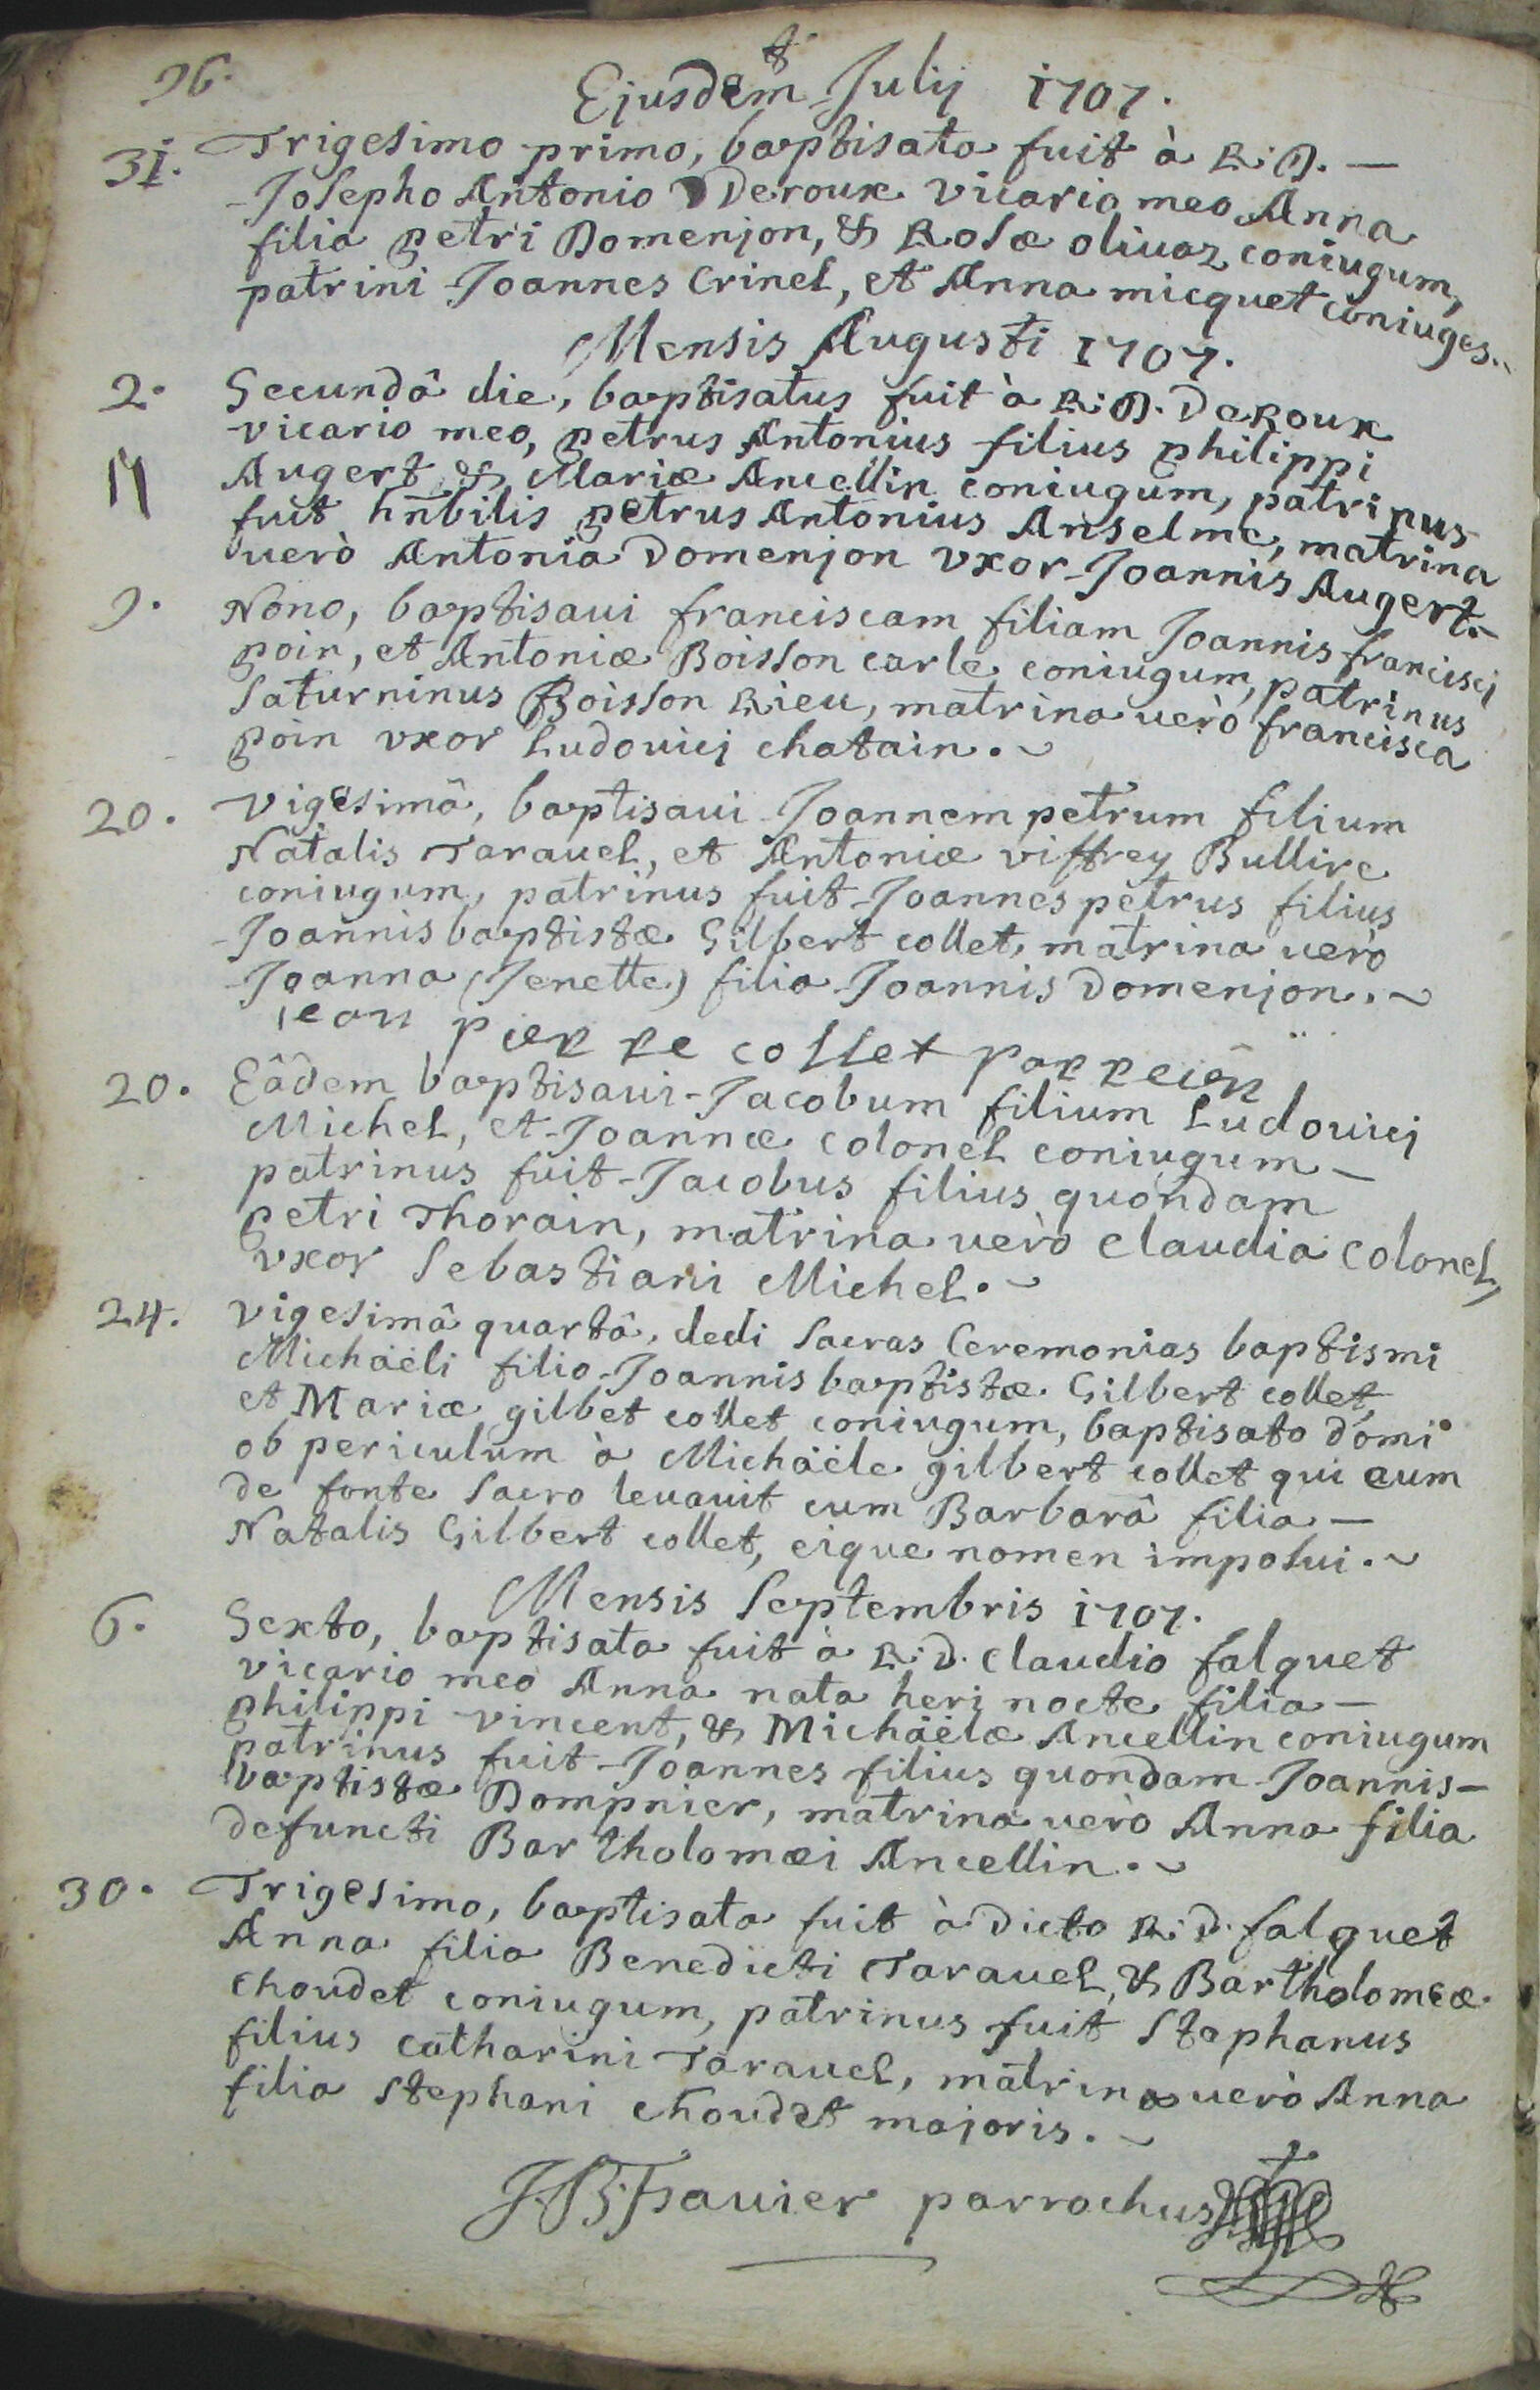 96.
Ejusdem Julij 1707.
31. Trigesimo primo, baptisata fuit à R: D. —
Josepho Antonio Deroux vicario meo Anna
filia petri Domenjon, & Rosæ oliuaz coniugum,
patrini Joannes Crinel, et Anna micquet coniuges.
Mensis Augusti 1707.
2. Secundâ die, baptisatus fuit à R: D. DeRoux
vicario meo, petrus Antonius filius philippi
Augert & Mariæ Ancellin coniugum, patrinus
fuit hnbilis petrus Antonius Anselme, matrina
uerò Antonia Domenjon vxor Joannis Augert.
9. Nono, baptisaui franciscam filiam Joannis francisci
poin, et Antoniæ Boisson carle coniugum, patrinus
Saturninus Boisson Rieu, matrina uerò francisca
poin vxor Ludouici chatain.
20. Vigesimâ, baptisaui Joannem petrum filium
Natalis Tarauel, et Antoniæ viffrey Bullire
coniugum, patrinus fuit Joannes petrus filius
Joannis baptistæ Gilbert collet, matrina uerò
Joanna (Jenette) filia Joannis Domenjon.
jean pierre collet parrein
20. Eâdem baptisaui Jacobum filium Ludouici
Michel, et Joannæ Colonel coniugum —
patrinus fuit Jacobus filius quondam
petri Thorain, matrina uerò claudia Colonel,
vxor Sebastiani Michel.
24. Vigesimâ quartâ, dedi Sacras Ceremonias baptismi
Michaëli filio Joannis baptistæ Gilbert collet,
et Mariæ gilbet collet coniugum, baptisato domi
ob periculum à Michaële gilbert collet qui eum
de fonte Sacro leuauit cum Barbarâ filia —
Natalis Gilbert collet, eique nomen imposui.
Mensis Septembris 1707.
6. Sexto, baptisata fuit à R: D. Claudio falquet
vicario meo Anna nata heri nocte filia —
philippi vincent, & Michaëlæ Ancellin coniugum
patrinus fuit Joannes filius quondam Joannis —
baptistæ Dompnier, matrina uerò Anna filia
defuncti Bartholomæi Ancellin.
30. Trigesimo, baptisata fuit à dicto R: D. falquet
Anna filia Benedicti Tarauel, & Bartholomeæ
choudet coniugum, patrinus fuit Stephanus
filius catharini Tarauel, matrina uerò Anna
filia Stephani choudet majoris.
parrochus